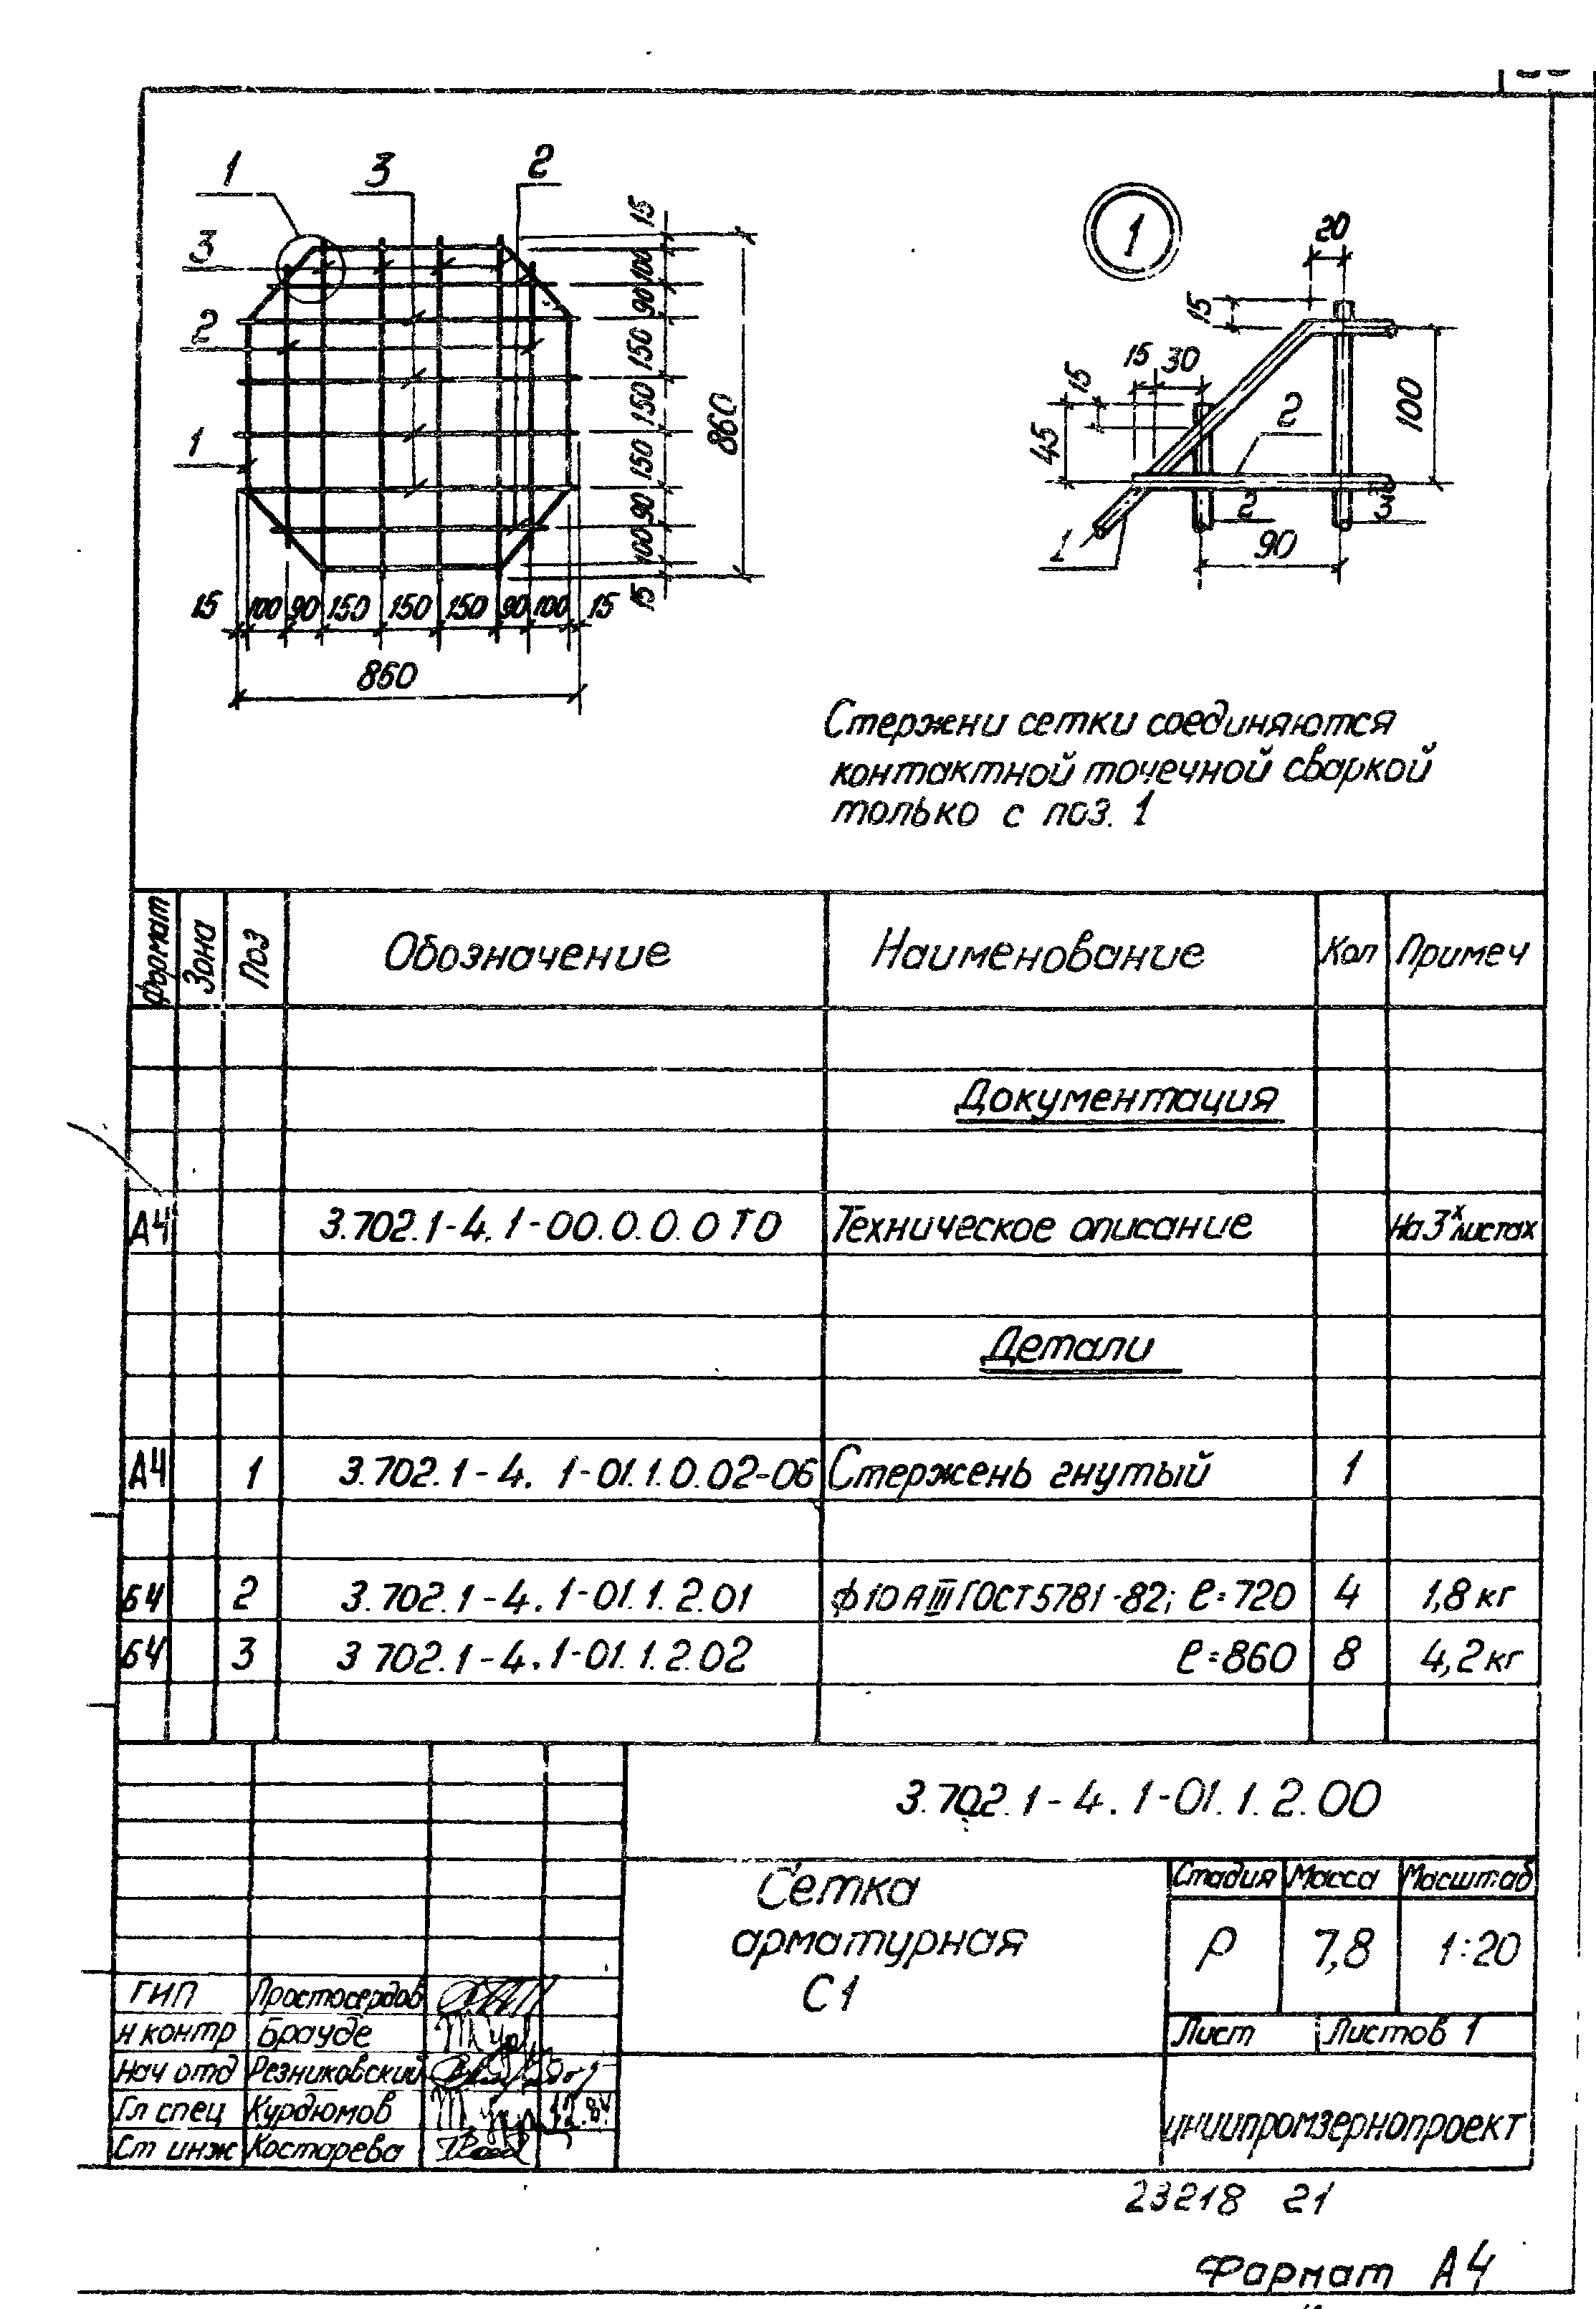 1 3 2
3
2
1
15
100
90
150
150
150
90
100
15
860
15 100 90 150 150 150 90 100 15
860
1
20
15
15 30
15
45
2
100
2 3
1
90
Стержни сетки соединяются
контактной точечной сваркой
только с поз. 1
формат Зона Поз Обозначение Наименование Кол Примеч
Документация
А4 3.702.1-4.1-00.0.0.0 ТО Техническое описание На 3х листах
Детали
А4 1 3.702.1-4.1-01.1.0.02-06 Стержень гнутый 1
Б4 2 3.702.1-4.1-01.1.2.01 ф10 А III ГОСТ 5781-82; ℓ=720 4 1,8 кг
Б4 3 3 702.1-4.1-01.1.2.02 ℓ=860 8 4,2 кг
3.702.1-4.1-01.1.2.00
Сетка
арматурная
С1
Стадия Масса Масштаб
Р 7,8 1:20
Лист Листов 1
ГИП Простосердов
Н контр Брауде
Нач отд Резниковский
Гл спец Курдюмов 12.84
Ст инж Костарева
ЦНИИпромзернопроект
23218 21
Формат А4